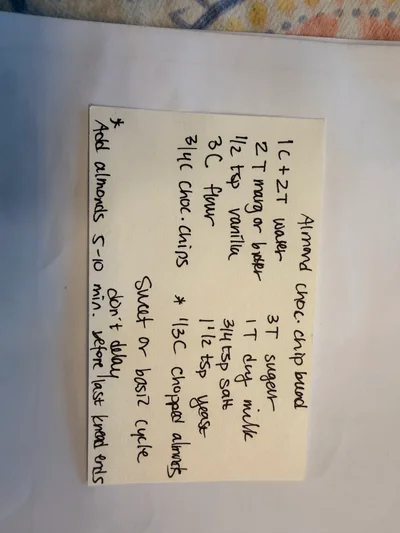 Almond choc. chip bread
1 C + 2 T water
2 T marg or butter
1/2 tsp vanilla
3 C flour
3/4 C choc. chips
3 T sugar
1 T dry milk
3/4 tsp salt
1 1/2 tsp yeast
* 1/3 C chopped almonds
Sweet or basic cycle
don't delay
* Add almonds 5-10 min. before last knead ends